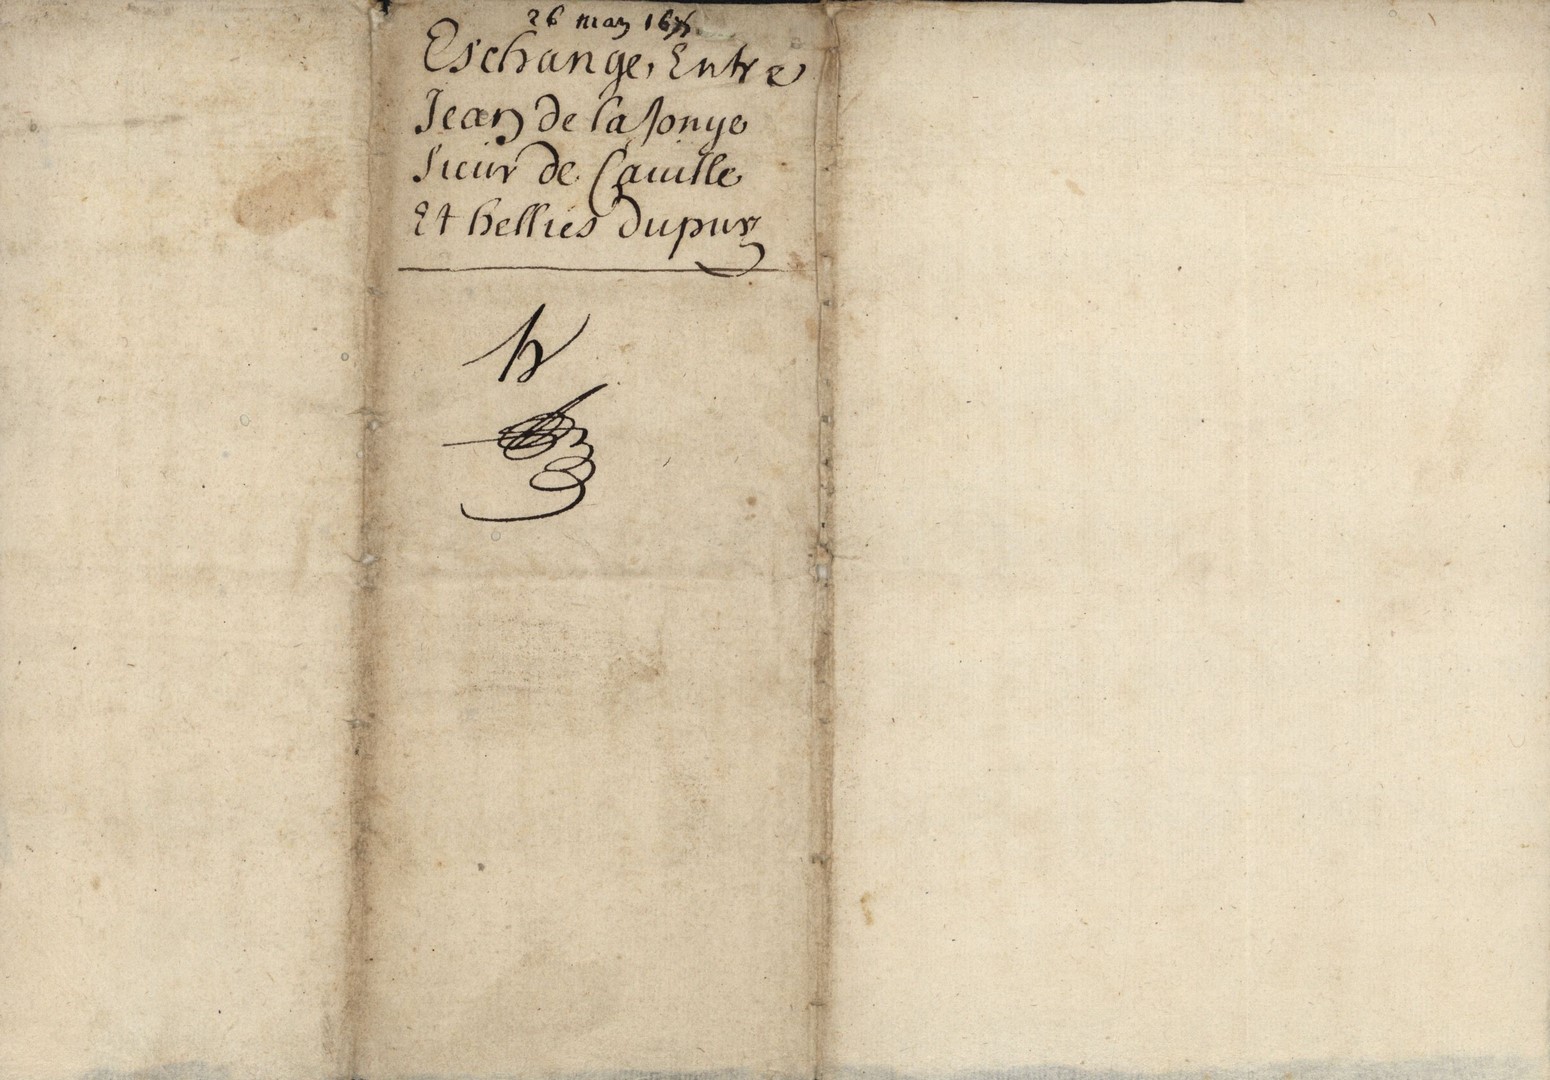 26 may 167
Eschange Entre
Jean de la fonye
sieur de Cauille
Et hellies Dupuy
h